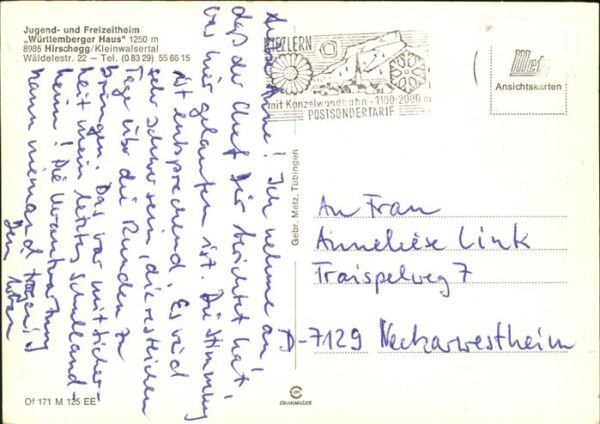 Jugend- und Freizeitheim
„Württemberger Haus" 1250 m
8985 Hirschegg/Kleinwalsertal
Wäldelestr. 22 – Tel. (0 83 29) 55 66 15
Ich nehme an
daß der Chef Dir berichtet hat,
was hier gelaufen ist. Die Stimmung
ist entsprechend. Es wird
sehr schwer sein, die restlichen
Tage über die Runden zu
bringen. Das war mit Sicher-
heit mein letztes Schulland-
heim! Die Verantwortung
kann niemand tragen!
Dein
RIEZLERN
mit Kanzelwandbahn · 1100-2000 m
POSTSONDERTARIF
Metz
Ansichtskarten
Gebr. Metz, Tübingen
An Frau
Anneliese Link
Traispelweg 7
D-7129 Neckarwestheim
Of 171 M 125 EE